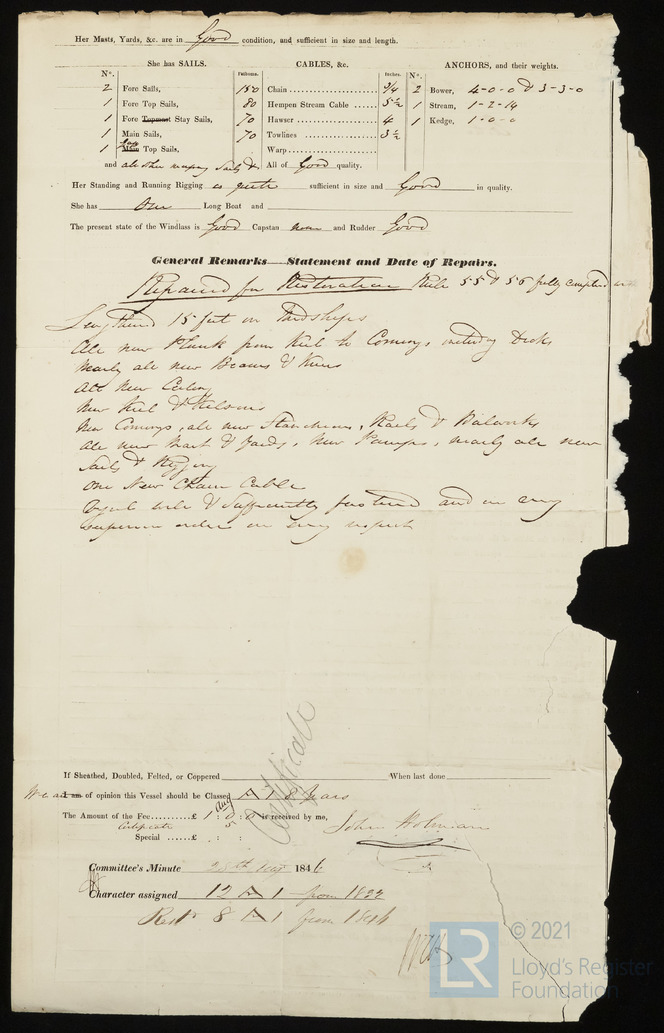 Her Masts, Yards, &c. are in Good condition, and sufficient in size and length.
She has SAILS.
CABLES, &c.
ANCHORS, and their weights.
N°.
Fathoms.
Inches.
N°.
2 Fore Sails,
150 Chain 3/4
2 Bower, 4-0-0 & 3-3-0
1 Fore Top Sails,
80 Hempen Stream Cable 5½
1 Stream, 1-2-14
1 Fore Topmast Stay Sails,
70 Hawser 4
1 Kedge, 1-0-0
1 Main Sails,
70 Towlines 3½
1 Main Top Sails,
Warp
and all other necessary Sails &
All of Good quality.
Her Standing and Running Rigging is sufficient in size and Good in quality.
She has One Long Boat and
The present state of the Windlass is Good Capstan none and Rudder Good
General Remarks—Statement and Date of Repairs.
Repaired for Restoration Rule 55 & 56 fully complied
Lengthened 15 feet in Midships
All new Plank from Keel to Comings including Decks
Nearly all new Beams & Knees
All New Ceiling
New Keel & Kelsons
New Comings, all new Stanchions, Rails & Bulwarks
All new Mast & Yards, New Pumps, nearly all new
Sails & Rigging
One New Chain Cable
Vessel well & Sufficiently fastened and in every
superior order in every respect
Certificate
If Sheathed, Doubled, Felted, or Coppered When last done
We are I am of opinion this Vessel should be Classed A 1 8 Years
The Amount of the Fee £ 1 : 0 : 0 is received by me,
John Holman
Certificate 5
Special £ : :
Committee's Minute 28th 1846
Character assigned 12 A 1 from 1822
Restd 8 A 1 from 1846
LR
© 2021
Lloyd's Register
Foundation